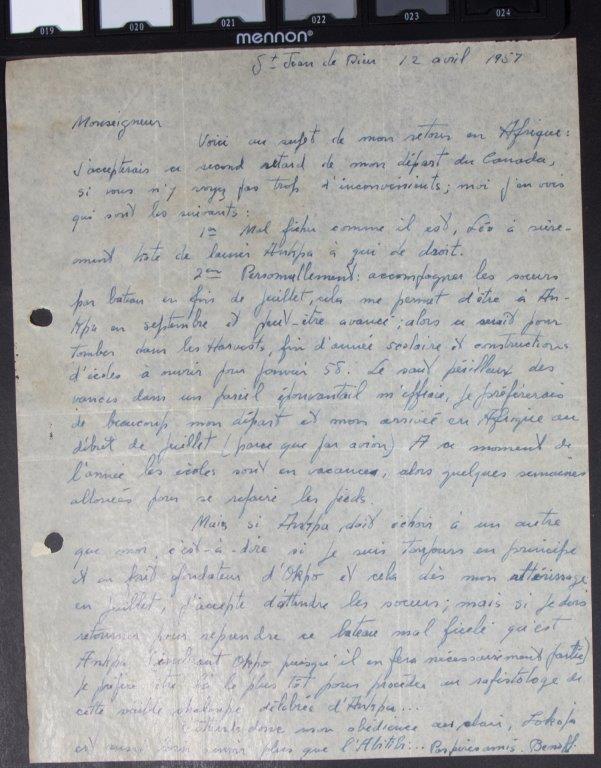 019 020 021 022 023 024
mennon®
St Jean de Dieu 12 avril 1957
Monseigneur
Voici au sujet de mon retour en Afrique:
j'accepterais ce second retard de mon départ du Canada,
si vous n'y voyez pas trop d'inconvénients; moi j'en vois
qui sont les suivants:
1er Mal fichu comme il est, Léo a sûre-
ment hâte de laisser Ankpa à qui de droit.
2em Personnellement: accompagner les soeurs
par bateau en fin de juillet, cela me permet d'être à An-
kpa en septembre et peut-être avancé; alors ce serait pour
tomber dans les Harvests, fin d'année scolaire et constructions
d'écoles à ouvrir pour janvier 58. Le saut périlleux des
vacances dans un pareil épouvantail m'effraie, je préférerais
de beaucoup mon départ et mon arrivée en Afrique au
début de juillet (parce que par avion) A ce moment de
l'année les écoles sont en vacances, alors quelques semaines
allouées pour se refaire les pieds.
Mais si Ankpa doit échoir à un autre
que moi, c'est-à-dire si je suis toujours en principe
et en fait fondateur d'Okpo et cela dès mon attérissage
en juillet, j'accepte d'attendre les soeurs; mais si je dois
retourner pour reprendre ce bateau mal ficelé qu'est
Ankpa, Okpo puisqu'il en fera nécessairement partie)
je préfère être là le plus tôt pour procéder au rafistolage de
cette vieille chaloupe délabrée d'Ankpa...
donc mon obédience au clair, Lokoja
est aussi pour savoir plus que l'Abitibi...